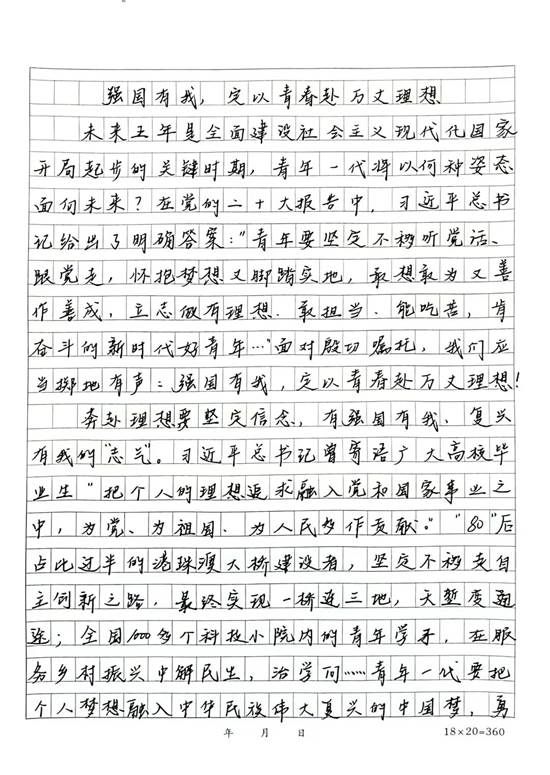 强国有我，定以青春赴万丈理想
未来五年是全面建设社会主义现代化国家
开局起步的关键时期，青年一代将以何种姿态
面向未来？在党的二十大报告中，习近平总书
记给出了明确答案：“青年要坚定不移听党话、
跟党走，怀抱梦想又脚踏实地，敢想敢为又善
作善成，立志做有理想、敢担当、能吃苦，肯
奋斗的新时代好青年…”面对殷切嘱托，我们应
当掷地有声：强国有我，定以青春赴万丈理想！
奔赴理想要坚定信念，有强国有我、复兴
有我的“志气”。习近平总书记曾寄语广大高校毕
业生“把个人的理想追求融入党和国家事业之
中，为党、为祖国、为人民多作贡献。”“80”后
占比过半的港珠澳大桥建设者，坚定不移走自
主创新之路，最终实现一桥连三地，天堑变通
途；全国1000多个科技小院内的青年学子，在服
务乡村振兴中解民生，治学问……青年一代要把
个人梦想融入中华民族伟大复兴的中国梦，勇
年 月 日
18×20=360